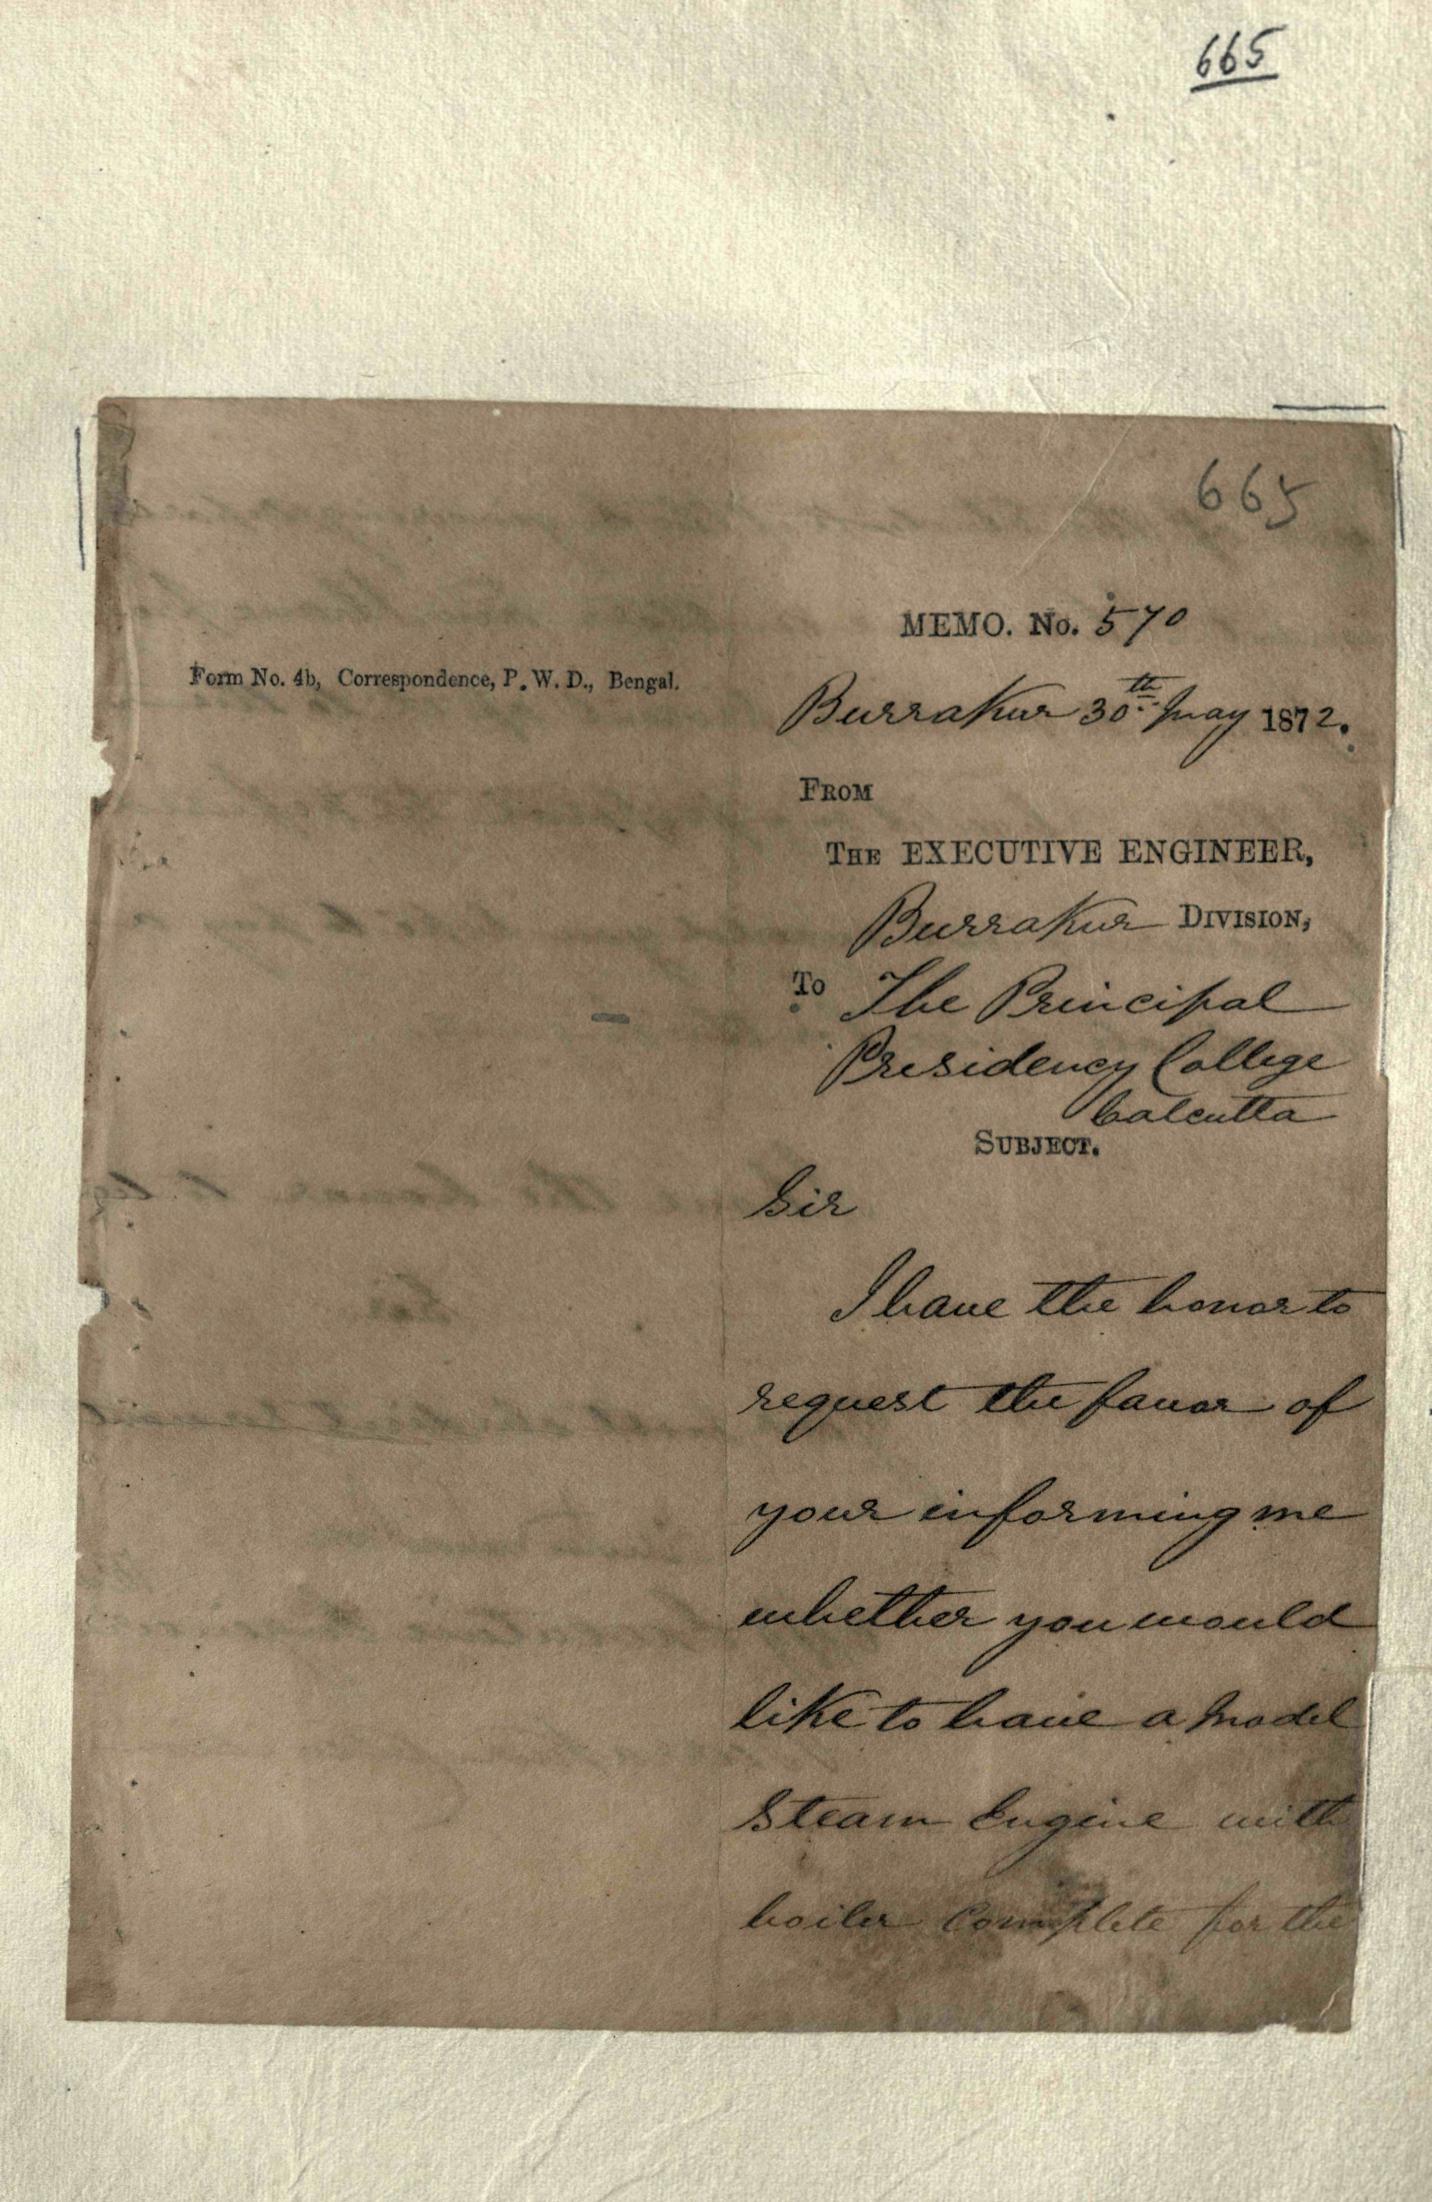 665
665
MEMO. No. 570
Form No. 4b, Correspondence, P. W. D., Bengal.
Burrakur 30th May 1872.
FROM
THE EXECUTIVE ENGINEER,
Burrakur DIVISION,
To The Principal
Presidency College
Calcutta
SUBJECT.
Sir
I have the honor to
request the favor of
your informing me
whether you would
like to have a Model
Steam Engine with
boiler Complete for the